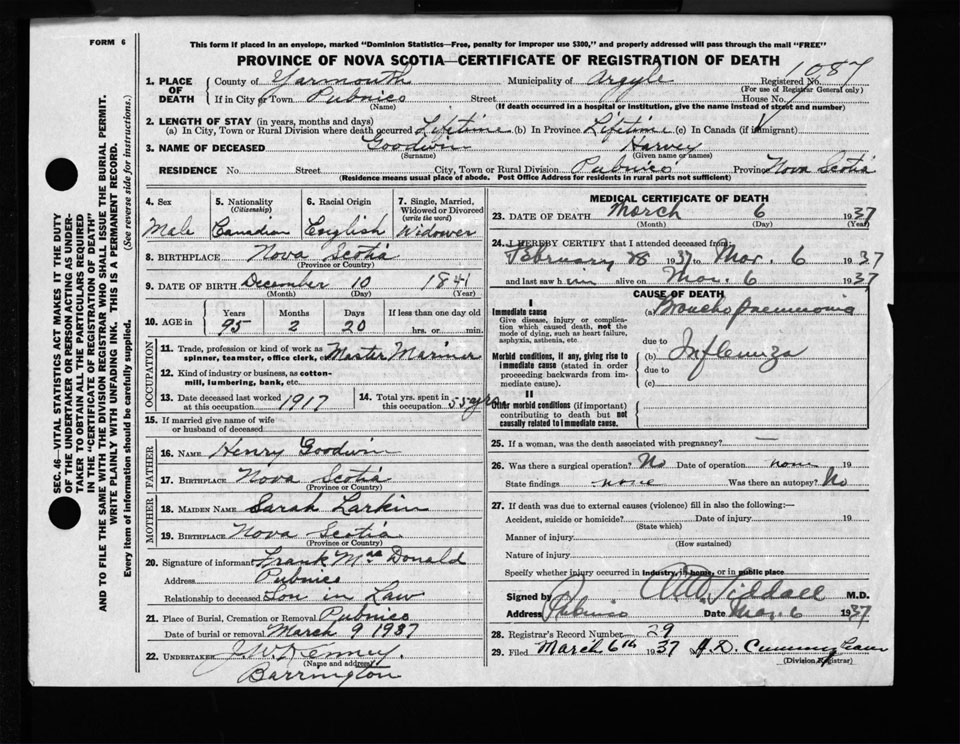 FORM 6
This form if placed in an envelope, marked "Dominion Statistics—Free, penalty for improper use $300," and properly addressed will pass through the mail "FREE"
PROVINCE OF NOVA SCOTIA—CERTIFICATE OF REGISTRATION OF DEATH
1087
1. PLACE OF DEATH County of Yarmouth Municipality of Argyle Registered No.
(For use of Registrar General only)
If in City or Town Pubnico Street House No.
(Name) (If death occurred in a hospital or institution, give the name instead of street and number)
2. LENGTH OF STAY (in years, months and days)
(a) In City, Town or Rural Division where death occurred Lifetime (b) In Province Lifetime (c) In Canada (if immigrant)
3. NAME OF DECEASED Goodwin Harvey
(Surname) (Given name or names)
RESIDENCE No. Street City, Town or Rural Division Pubnico Province Nova Scotia
(Residence means usual place of abode. Post Office Address for residents in rural parts not sufficient)
4. Sex 5. Nationality (Citizenship) 6. Racial Origin 7. Single, Married, Widowed or Divorced (write the word)
Male Canadian English Widower
8. BIRTHPLACE Nova Scotia
(Province or Country)
9. DATE OF BIRTH December 10 1841
(Month) (Day) (Year)
10. AGE in Years Months Days If less than one day old
95 2 20 hrs. or min.
OCCUPATION
11. Trade, profession or kind of work as spinner, teamster, office clerk, etc. Master Mariner
12. Kind of industry or business, as cotton-mill, lumbering, bank, etc.
13. Date deceased last worked at this occupation 1917 14. Total yrs. spent in this occupation 55 yrs
15. If married give name of wife or husband of deceased
FATHER
16. NAME Henry Goodwin
17. BIRTHPLACE Nova Scotia
(Province or Country)
MOTHER
18. MAIDEN NAME Sarah Larkin
19. BIRTHPLACE Nova Scotia
(Province or Country)
20. Signature of informant Frank MacDonald
Address Pubnico
Relationship to deceased Son in Law
21. Place of Burial, Cremation or Removal Pubnico
Date of burial or removal March 9 1937
22. UNDERTAKER J. W. Kenney.
(Name and address)
Barrington
MEDICAL CERTIFICATE OF DEATH
23. DATE OF DEATH March 6 1937
(Month) (Day) (Year)
24. I HEREBY CERTIFY that I attended deceased from
February 28 1937 to Mar. 6 1937
and last saw him alive on Mar. 6 1937
CAUSE OF DEATH
I
Immediate cause (a) Broncho pneumonia
Give disease, injury or complication which caused death, not the mode of dying, such as heart failure, asphyxia, asthenia, etc.
due to
Morbid conditions, if any, giving rise to immediate cause (stated in order proceeding backwards from immediate cause).
(b) Influenza
due to
(c)
II
Other morbid conditions (if important) contributing to death but not causally related to immediate cause.
25. If a woman, was the death associated with pregnancy? —
26. Was there a surgical operation? No Date of operation none 19
State findings none Was there an autopsy? No
27. If death was due to external causes (violence) fill in also the following:—
Accident, suicide or homicide? Date of injury 19
(State which)
Manner of injury
(How sustained)
Nature of injury
Specify whether injury occurred in industry, in home, or in public place
Signed by Siddall M.D.
Address Pubnico Date Mar. 6 1937
28. Registrar's Record Number 29
29. Filed March 6th 1937 H. D. Cunningham
(Division Registrar)
SEC. 46—VITAL STATISTICS ACT MAKES IT THE DUTY
OF THE UNDERTAKER OR PERSON ACTING AS UNDER-
TAKER TO OBTAIN ALL THE PARTICULARS REQUIRED
IN THE "CERTIFICATE OF REGISTRATION OF DEATH"
AND TO FILE THE SAME WITH THE DIVISION REGISTRAR WHO SHALL ISSUE THE BURIAL PERMIT.
WRITE PLAINLY WITH UNFADING INK. THIS IS A PERMANENT RECORD.
Every item of information should be carefully supplied. (See reverse side for instructions.)